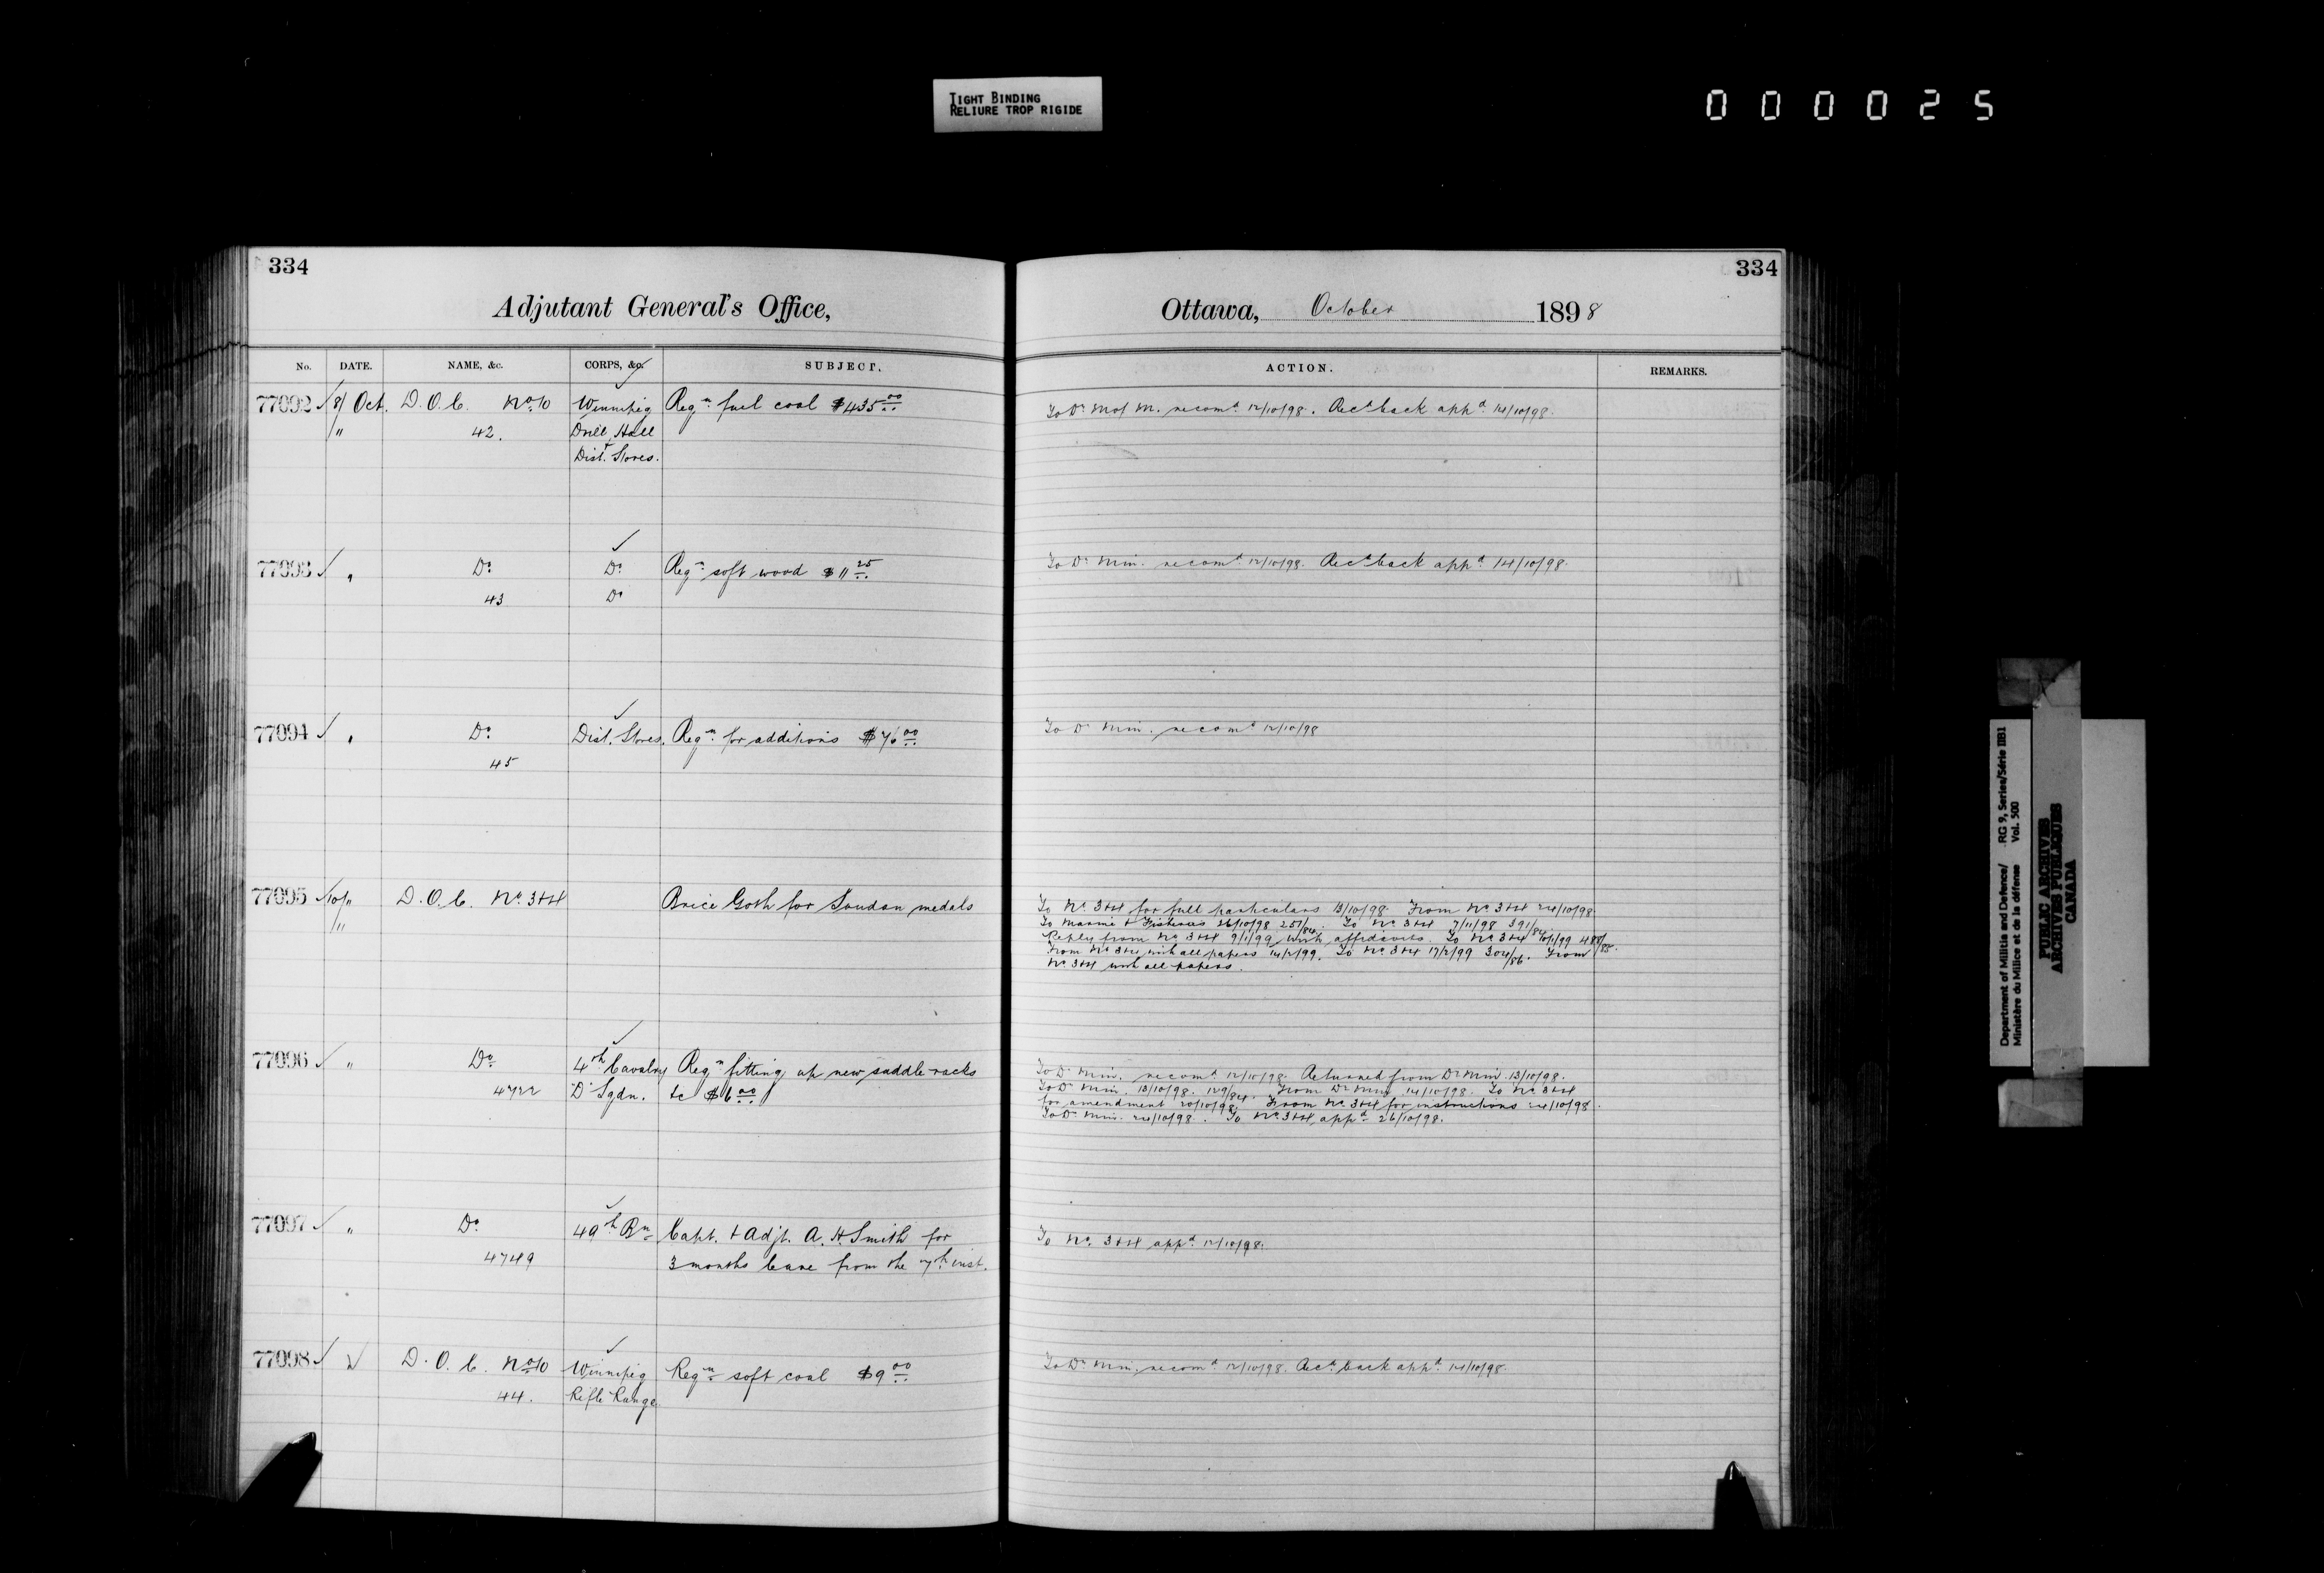 TIGHT BINDING
RELIURE TROP RIGIDE
000025
334
Adjutant General's Office,
No. DATE. NAME, &c. CORPS, &c. SUBJECT.
77092 8/ Oct. D.O.C. No. 10 Winnipeg Reqn fuel coal $435.00
" 42. Drill Hall
+
Dist. Stores.
77093 " Do Do Reqn soft wood $11.25
43 Do
77094 " Do Dist. Stores. Reqn for additions $76.00
45
77095 10/" D.O.C. No 3+4 Brice Goth for Soudan medals
"
77096 " Do 4th Cavalry Reqn fitting up new saddle racks
4722 "D" Sqdn. &c $6.00
77097 " Do 49th Bn Capt. + Adjt. A. H. Smith for
4749 3 months leave from the 7th inst.
77098 D.O.C. No 10 Winnipeg Reqn soft coal $9.00
44. Rifle Range.
334
Ottawa, October 1898
ACTION. REMARKS.
To D. M of M. recomd 12/10/98. Recd back appd 14/10/98.
To D. Min. recomd 12/10/98. Recd back appd 14/10/98.
To D. Min. recomd 12/10/98
To No 3+4 for full particulars 13/10/98. From No 3+4 24/10/98.
To Marine + Fisheries 26/10/98 251/84. To No 3+4 7/11/98 391/84
Reply from No 3+4 9/1/99 with affidavits. To No 3+4 /1/99 /85.
From No 3+4 with all papers 14/2/99. To No 3+4 17/2/99 304/86. From
No 3+4 with all papers.
To D. Min. recomd 12/10/98. Returned from Dr Min. 13/10/98.
To D. Min. 13/10/98. 129/84. From Dr Min. 14/10/98. To No 3+4
for amendment 20/10/98. From No 3+4 for instructions 24/10/98.
To D. Min. 24/10/98. To No 3+4, appd 26/10/98.
To No. 3+4 appd 12/10/98.
To D. Min. recomd 12/10/98. Recd back appd 14/10/98.
Department of Militia and Defence/ RG 9, Series/Série IIB1
Ministère du Milice et de la défense Vol. 500
PUBLIC ARCHIVES
ARCHIVES PUBLIQUES
CANADA